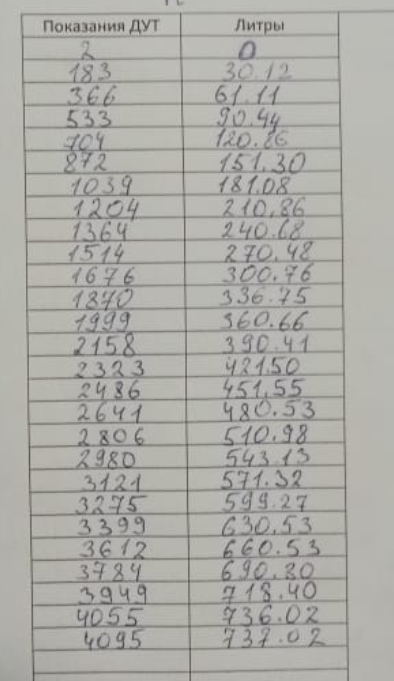 Показания ДУТ Литры
2 0
183 30.12
366 61.11
533 90.44
704 120.86
872 151.30
1039 181.08
1204 210.86
1364 240.68
1514 270.48
1676 300.76
1870 336.75
1999 360.66
2158 390.41
2323 421.50
2486 451.55
2641 480.53
2806 510.98
2980 543.13
3121 571.32
3275 599.27
3399 630.53
3612 660.53
3784 690.80
3949 718.40
4055 736.02
4095 737.02